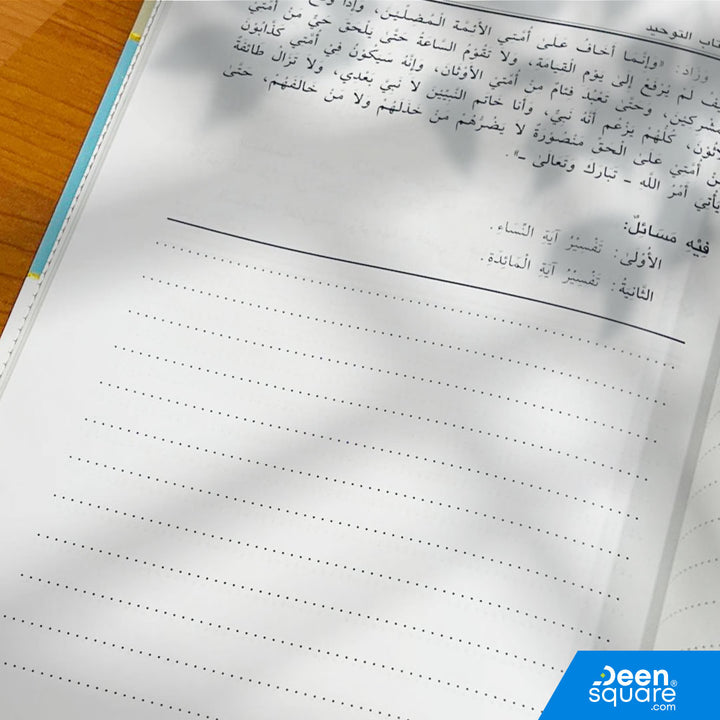 ـتاب التوحيد
وزاد: «وإِنَّمَا أَخَافُ عَلَىٰ أُمَّتِي الأَئِمَّةَ الْمُضِلِّينَ، وَإِذَا
لَمْ يُرْفَعْ إِلَىٰ يَوْمِ الْقِيَامَةِ، وَلَا تَقُوْمُ السَّاعَةُ حَتَّىٰ يَلْحَقَ حَيٌّ مِنْ أُمَّتِي
وَحَتَّىٰ تَعْبُدَ فِئَامٌ مِنْ أُمَّتِيَ الأَوْثَانَ، وَإِنَّهُ سَيَكُوْنُ فِيْ أُمَّتِيْ كَذَّابُوْنَ
كُلُّهُمْ يَزْعُمُ أَنَّهُ نَبِيٌّ، وَأَنَا خَاتَمُ النَّبِيِّيْنَ لَا نَبِيَّ بَعْدِي، وَلَا تَزَالُ طَائِفَةٌ
مِنْ أُمَّتِيْ عَلَى الْحَقِّ مَنْصُوْرَةً لَا يَضُرُّهُمْ مَنْ خَذَلَهُمْ وَلَا مَنْ خَالَفَهُمْ، حَتَّىٰ
يَأْتِيَ أَمْرُ اللهِ ـ تبارك وتعالى ـ».
فِيْهِ مَسَائِلُ:
الأُوْلَىٰ: تَفْسِيْرُ آيَةِ النِّسَاءِ.
الثَّانِيَةُ: تَفْسِيْرُ آيَةِ الْمَائِدَةِ.
Deen
square®
.com